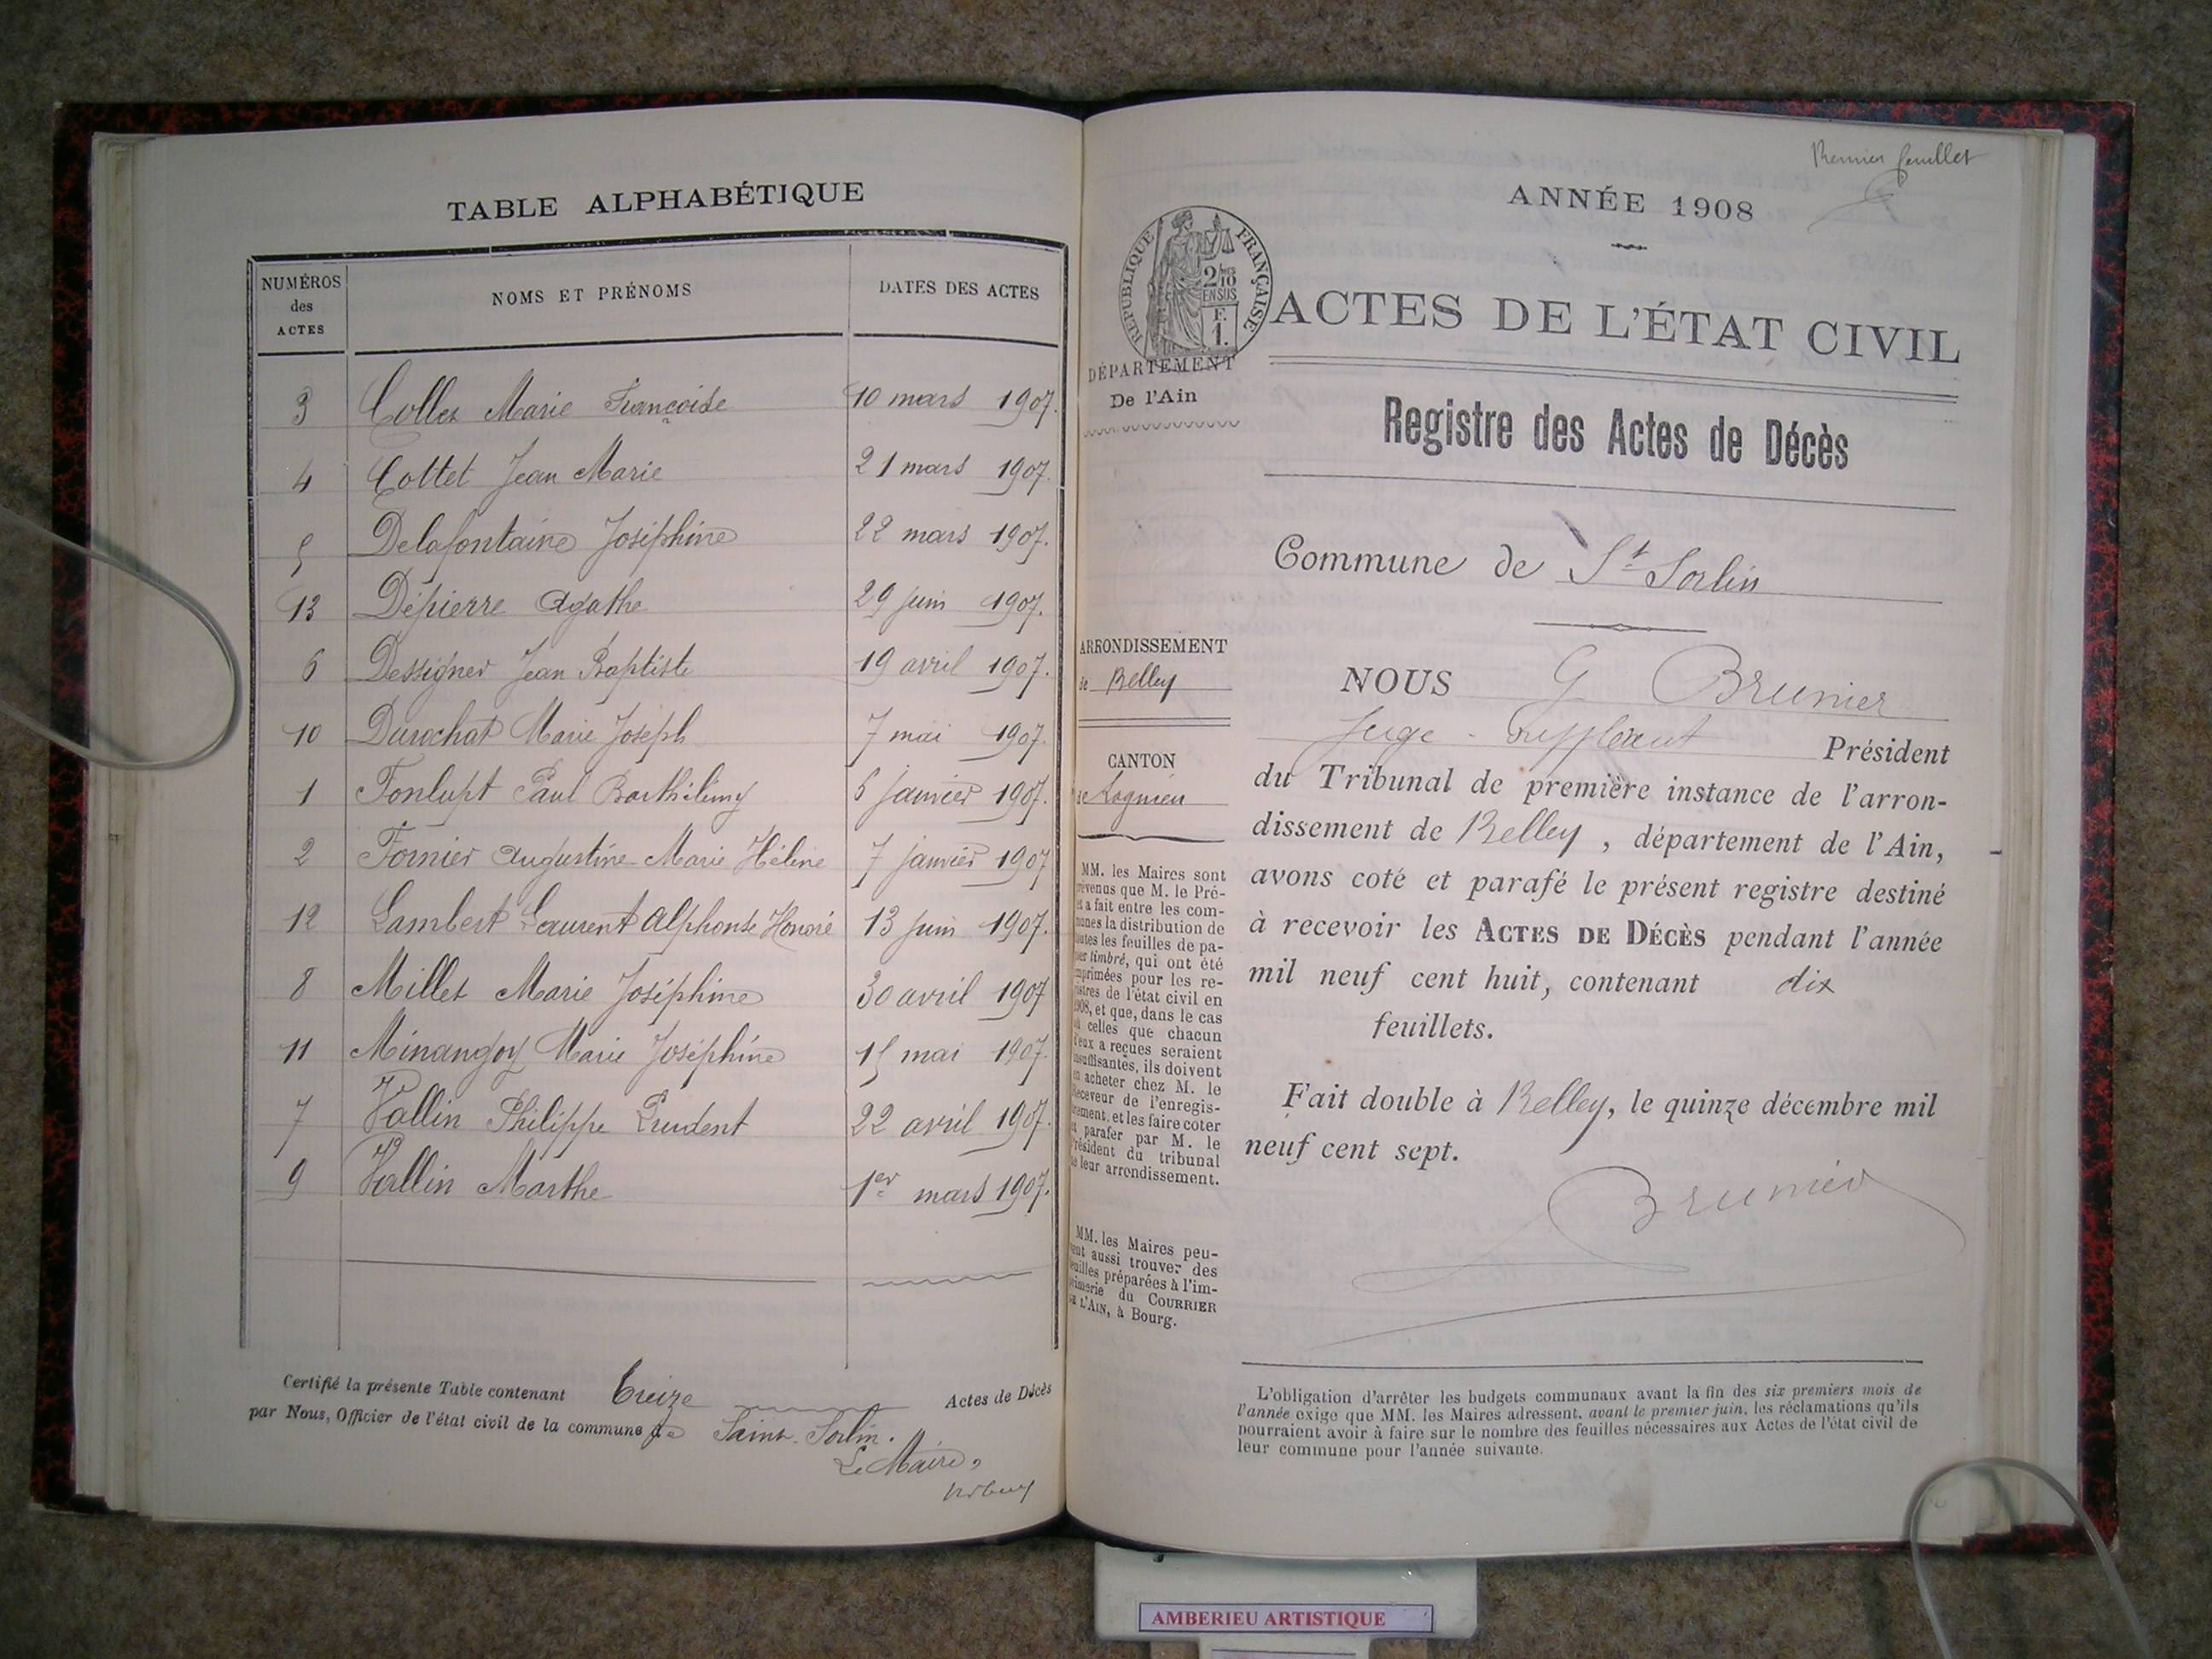 TABLE ALPHABÉTIQUE
NUMÉROS
des
ACTES
NOMS ET PRÉNOMS
DATES DES ACTES
3 Collet Marie Françoise 10 mars 1907.
4 Cottet Jean Marie 21 mars 1907.
5 Delafontaine Joséphine 22 mars 1907.
13 Dépierre Agathe 29 juin 1907.
6 Dessigner Jean Baptiste 19 avril 1907.
10 Durochat Marie Joseph 7 mai 1907.
1 Fonlupt Paul Barthélimy 6 janvier 1907.
2 Fornier Augustine Marie Hélène 7 janvier 1907
12 Lambert Laurent Alphonse Honoré 13 juin 1907.
8 Millet Marie Joséphine 30 avril 1907
11 Minangoy Marie Joséphine 15 mai 1907.
7 Vallin Philippe Prudent 22 avril 1907.
9 Vallin Marthe 1er mars 1907.
Certifié la présente Table contenant treize Actes de Décès
par Nous, Officier de l'état civil de la commune de Saint-Sorlin.
Le Maire,
Premier feuillet
ANNÉE 1908
RÉPUBLIQUE FRANÇAISE
2/10
EN SUS
F.
1.
ACTES DE L'ÉTAT CIVIL
DÉPARTEMENT
De l'Ain
Registre des Actes de Décès
Commune de St Sorlin
ARRONDISSEMENT
de Belley
CANTON
de Lagnieu
MM. les Maires sont
prévenus que M. le Pré-
et a fait entre les com-
munes la distribution de
toutes les feuilles de pa-
pier timbré, qui ont été
imprimées pour les re-
gistres de l'état civil en
1908, et que, dans le cas
où celles que chacun
d'eux a reçues seraient
insuffisantes, ils doivent
en acheter chez M. le
Receveur de l'enregis-
trement, et les faire coter
et parafer par M. le
Président du tribunal
de leur arrondissement.
MM. les Maires peu-
vent aussi trouver des
feuilles préparées à l'im-
primerie du COURRIER
DE L'AIN, à Bourg.
NOUS G Brunier
Juge-Suppléant Président
du Tribunal de première instance de l'arron-
dissement de Belley, département de l'Ain,
avons coté et parafé le présent registre destiné
à recevoir les ACTES DE DÉCÈS pendant l'année
mil neuf cent huit, contenant dix
feuillets.
Fait double à Belley, le quinze décembre mil
neuf cent sept.
Brunier
L'obligation d'arrêter les budgets communaux avant la fin des six premiers mois de
l'année exige que MM. les Maires adressent, avant le premier juin, les réclamations qu'ils
pourraient avoir à faire sur le nombre des feuilles nécessaires aux Actes de l'état civil de
leur commune pour l'année suivante.
AMBERIEU ARTISTIQUE